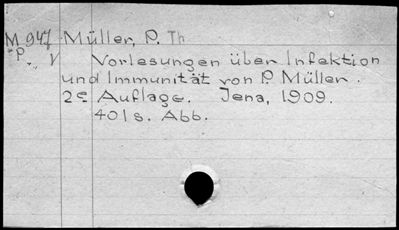 M 947 Müller, P. Th
"P"
V Vorlesungen über Infektion
und Immunität von P. Müller.
2e Auflage. Jena, 1909.
401 s. Abb.